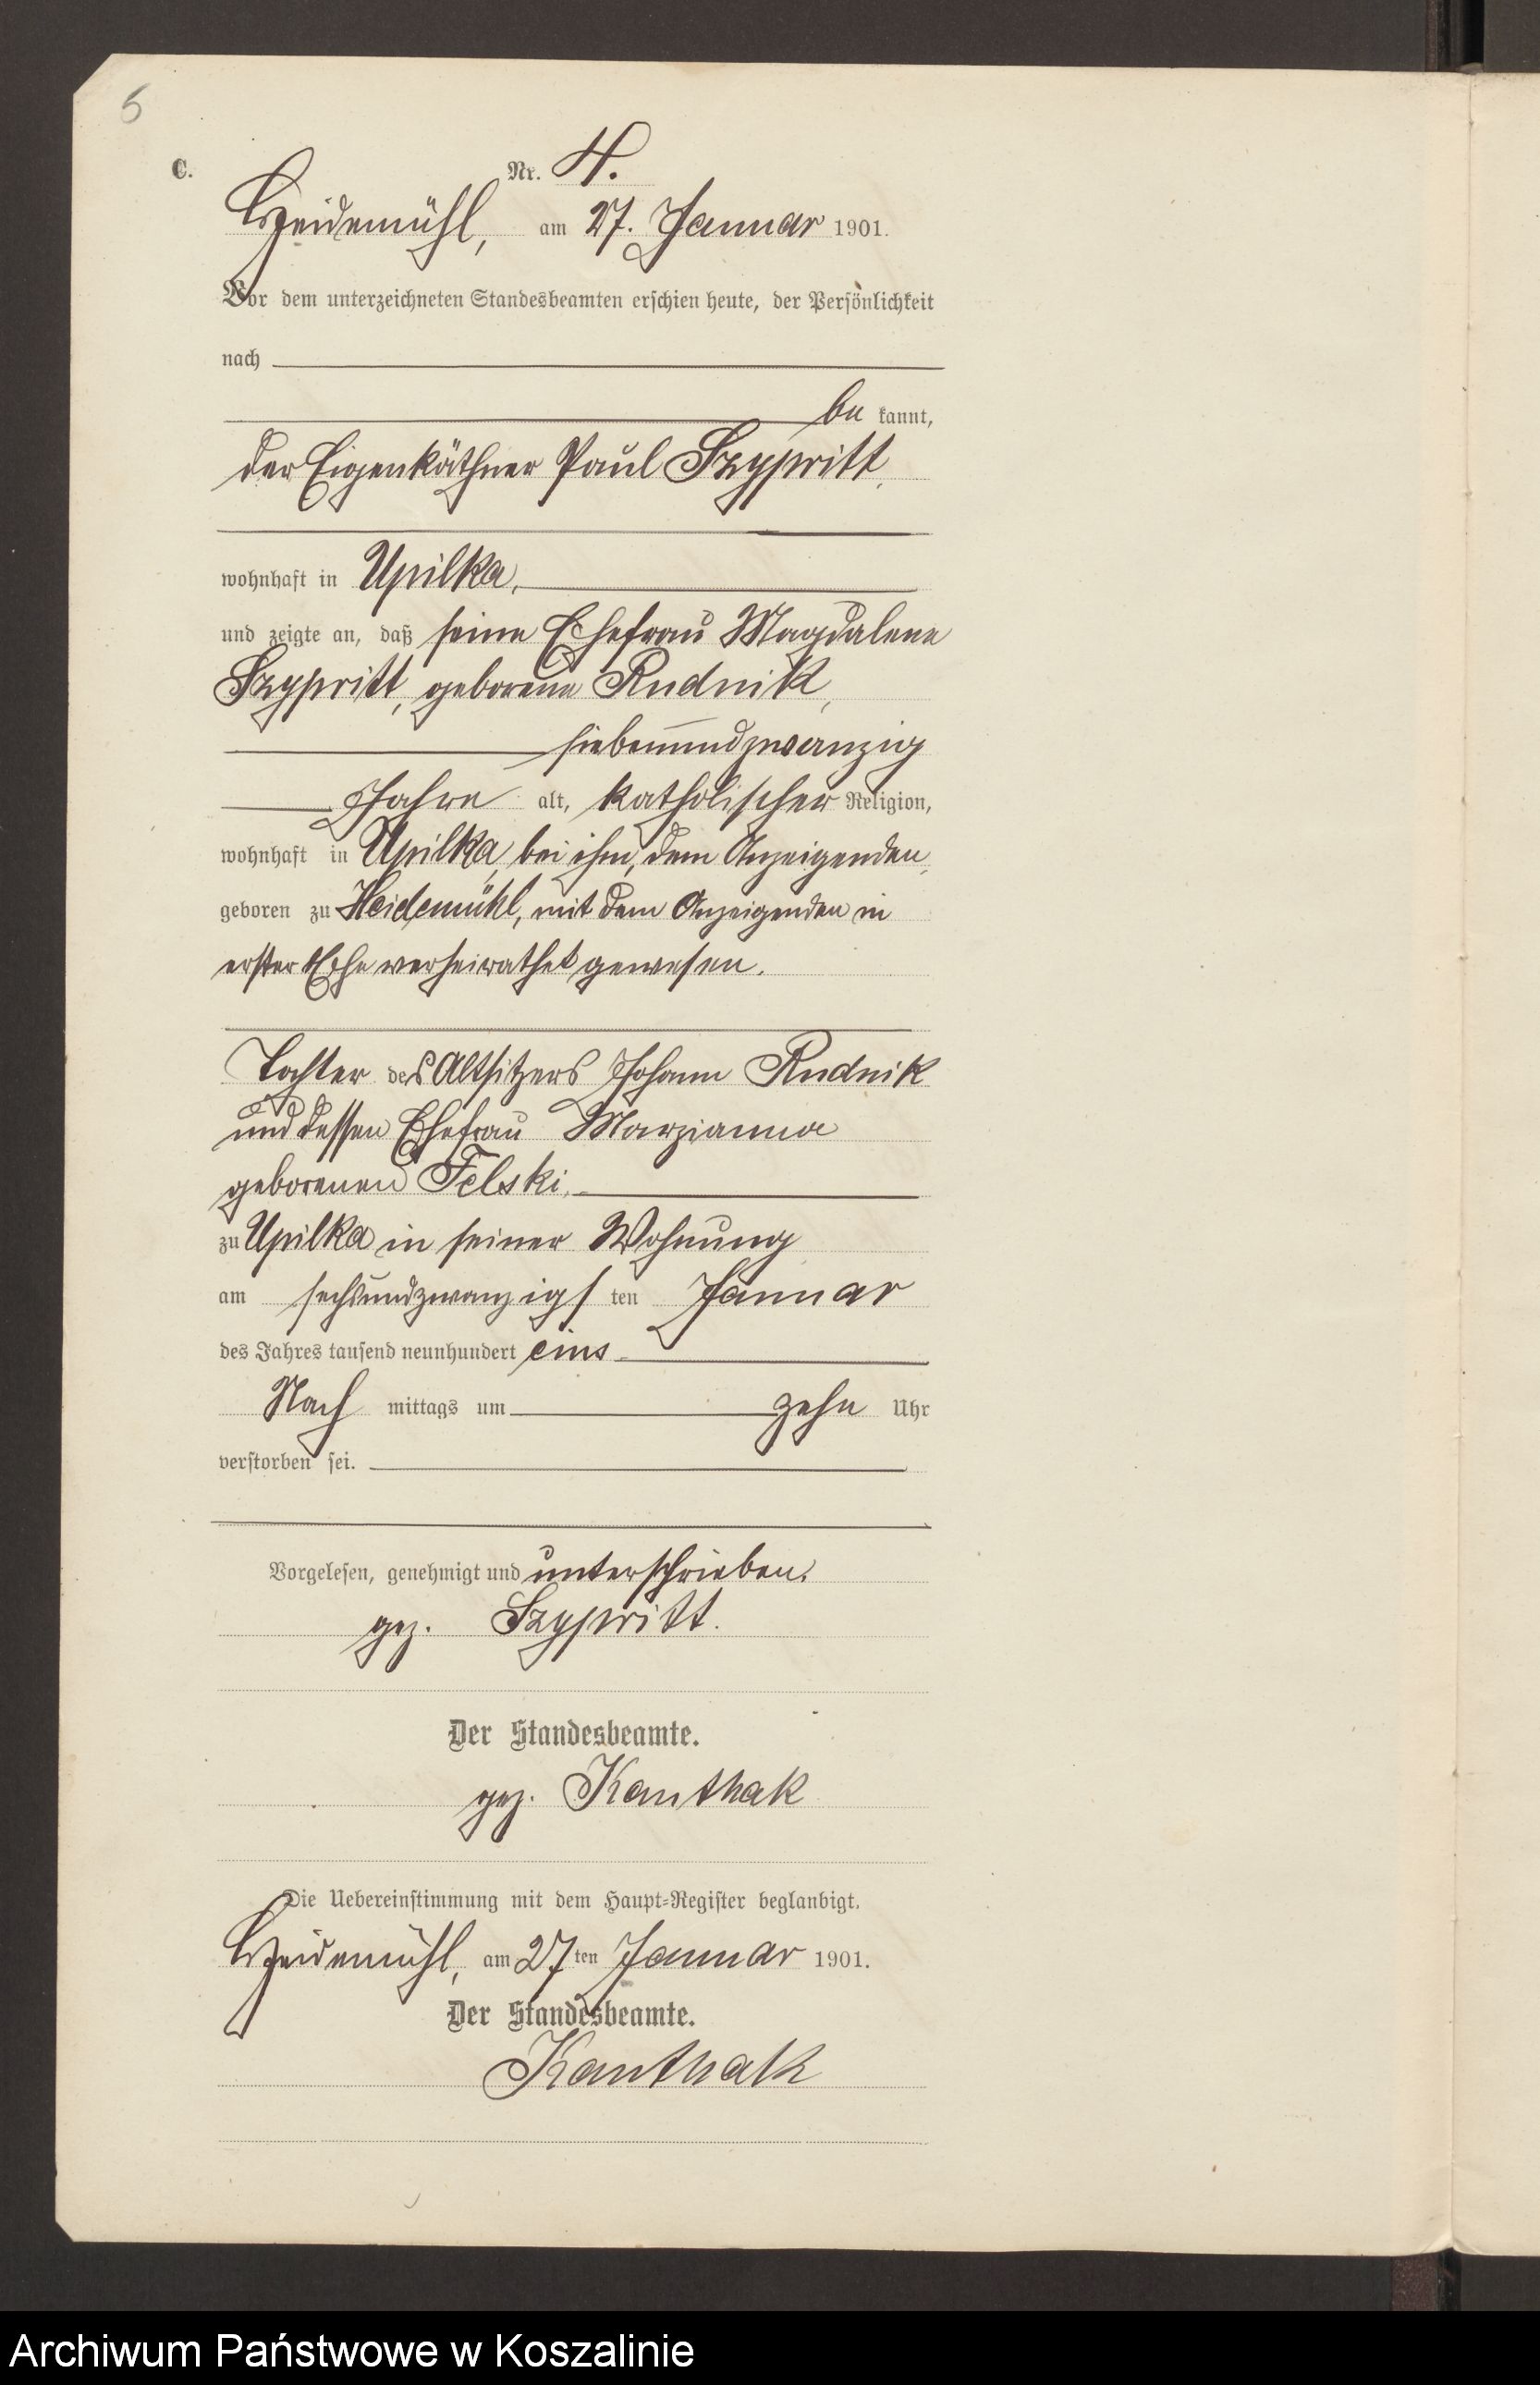 5
C.
Nr. 4.
Heidemühl, am 27. Januar 1901.
Vor dem unterzeichneten Standesbeamten erschien heute, der Persönlichkeit
nach
be kannt,
der Eigenkäthner Paul Szypritt,
wohnhaft in Upilka,
und zeigte an, daß seine Ehefrau Magdalene
Szypritt, geborene Rudnik,
siebenundzwanzig
Jahre alt, katholischer Religion,
wohnhaft in Upilka, bei ihm, dem Anzeigenden,
geboren zu Heidemühl, mit dem Anzeigenden in
erster Ehe verheirathet gewesen.
Tochter des Altsitzers Johann Rudnik
und dessen Ehefrau Marzianna
geborenen Felski,
zu Upilka in seiner Wohnung
am sechsundzwanzigs ten Januar
des Jahres tausend neunhundert eins
Nach mittags um zehn Uhr
verstorben sei.
Vorgelesen, genehmigt und unterschrieben.
gez. Szypritt.
Der Standesbeamte.
gez. Kanthak
Die Uebereinstimmung mit dem Haupt-Register beglaubigt.
Heidemühl, am 27ten Januar 1901.
Der Standesbeamte.
Kanthak
Archiwum Państwowe w Koszalinie